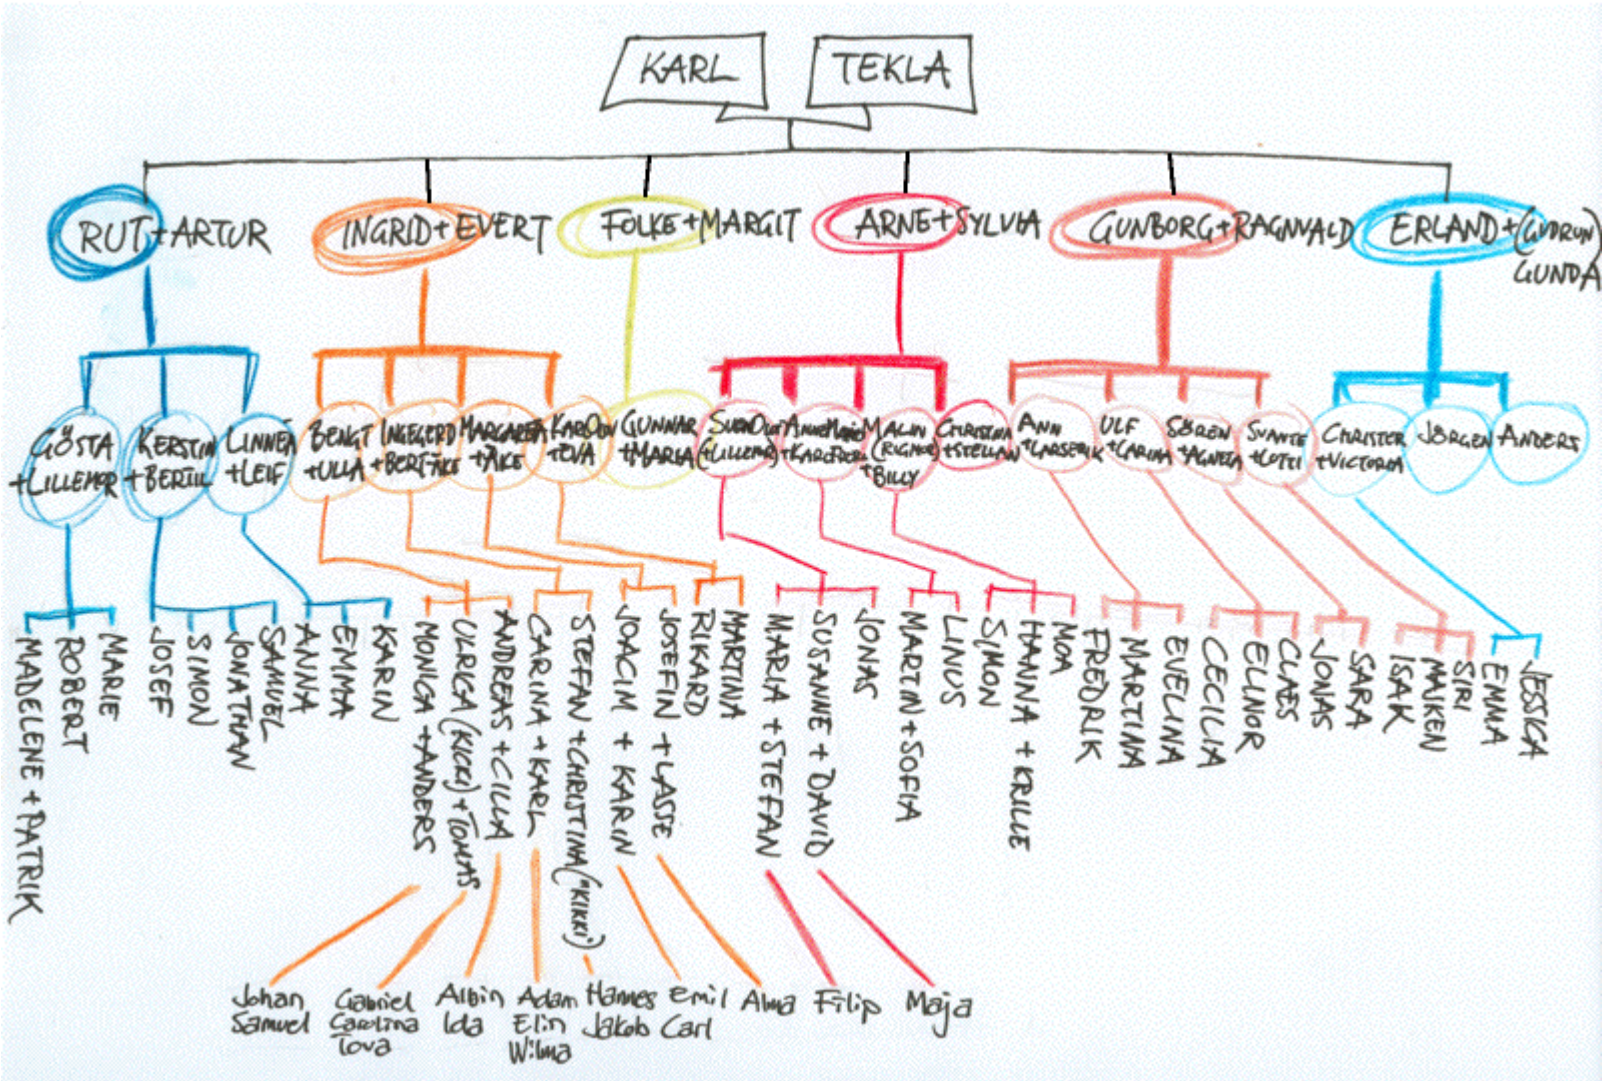 KARL
TEKLA
RUT + ARTUR
INGRID + EVERT
FOLKE + MARGIT
ARNE + SYLVIA
GUNBORG + RAGNVALD
ERLAND + (GUDRUN)
GUNDA
GÖSTA
+ LILLEMOR
KERSTIN
+ BERTIL
LINNEA
+ LEIF
BENGT
+ ULLA
INGEGERD
+ BERT-ÅKE
MARGARETA
+ ÅKE
KARL-OLOV
+ EVA
GUNNAR
+ MARIA
(+ LILLEMOR)
MALIN
(RIGMOR)
+ BILLY
CHRISTINA
+ STELLAN
ANN
+ LARSERIK
ULF
+ CARINA
SÖREN
+ AGNETA
SVANTE
+ LOTTI
CHRISTER
+ VICTORIA
JÖRGEN
ANDERS
MADELENE + PATRIK
ROBERT
MARIE
JOSEF
SIMON
JONATHAN
SAMUEL
ANNA
EMMA
KARIN
MONICA + ANDERS
ULRICA (KICKI) + TOMAS
ANDREAS + CILLA
CARINA + KARL
STEFAN + CHRISTINA ("KIKKI")
JOACIM + KARIN
JOSEFIN + LASSE
RIKARD
MARTINA
MARIA + STEFAN
SUSANNE + DAVID
JONAS
MARTIN + SOFIA
LINUS
SIMON
HANNA + KRILLE
MOA
FREDRIK
MARTINA
EVELINA
CECILIA
ELINOR
CLAES
JONAS
SARA
ISAK
MAJKEN
SIRI
EMMA
JESSICA
Johan
Samuel
Gabriel
Carolina
Tova
Albin
Ida
Adam
Elin
Wilma
Hannes
Jakob
Emil
Carl
Alma
Filip
Maja